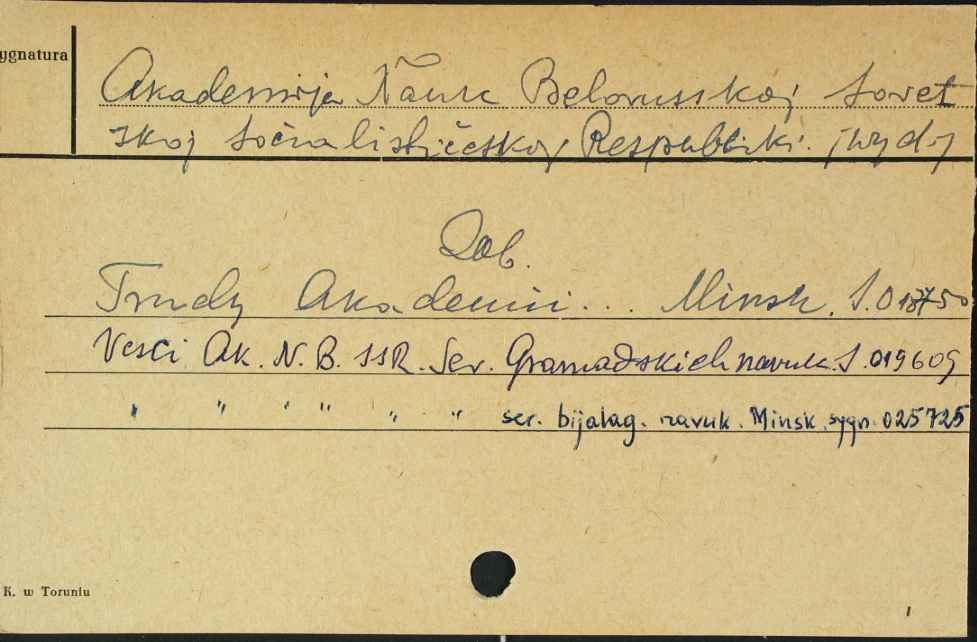 ygnatura
Akademija Nauk Belorusskoj Sovet
skoj Socialističeskoj Respubliki. [wyd]
Zob.
Trudy Akademii... Minsk. S. 018750
Vesci Ak. N. B. SSR. Ser. Gramadskich navuk. S. 019609
" " " " " " ser. bijalag. navuk. Minsk. sygn. 025725
K. w Toruniu